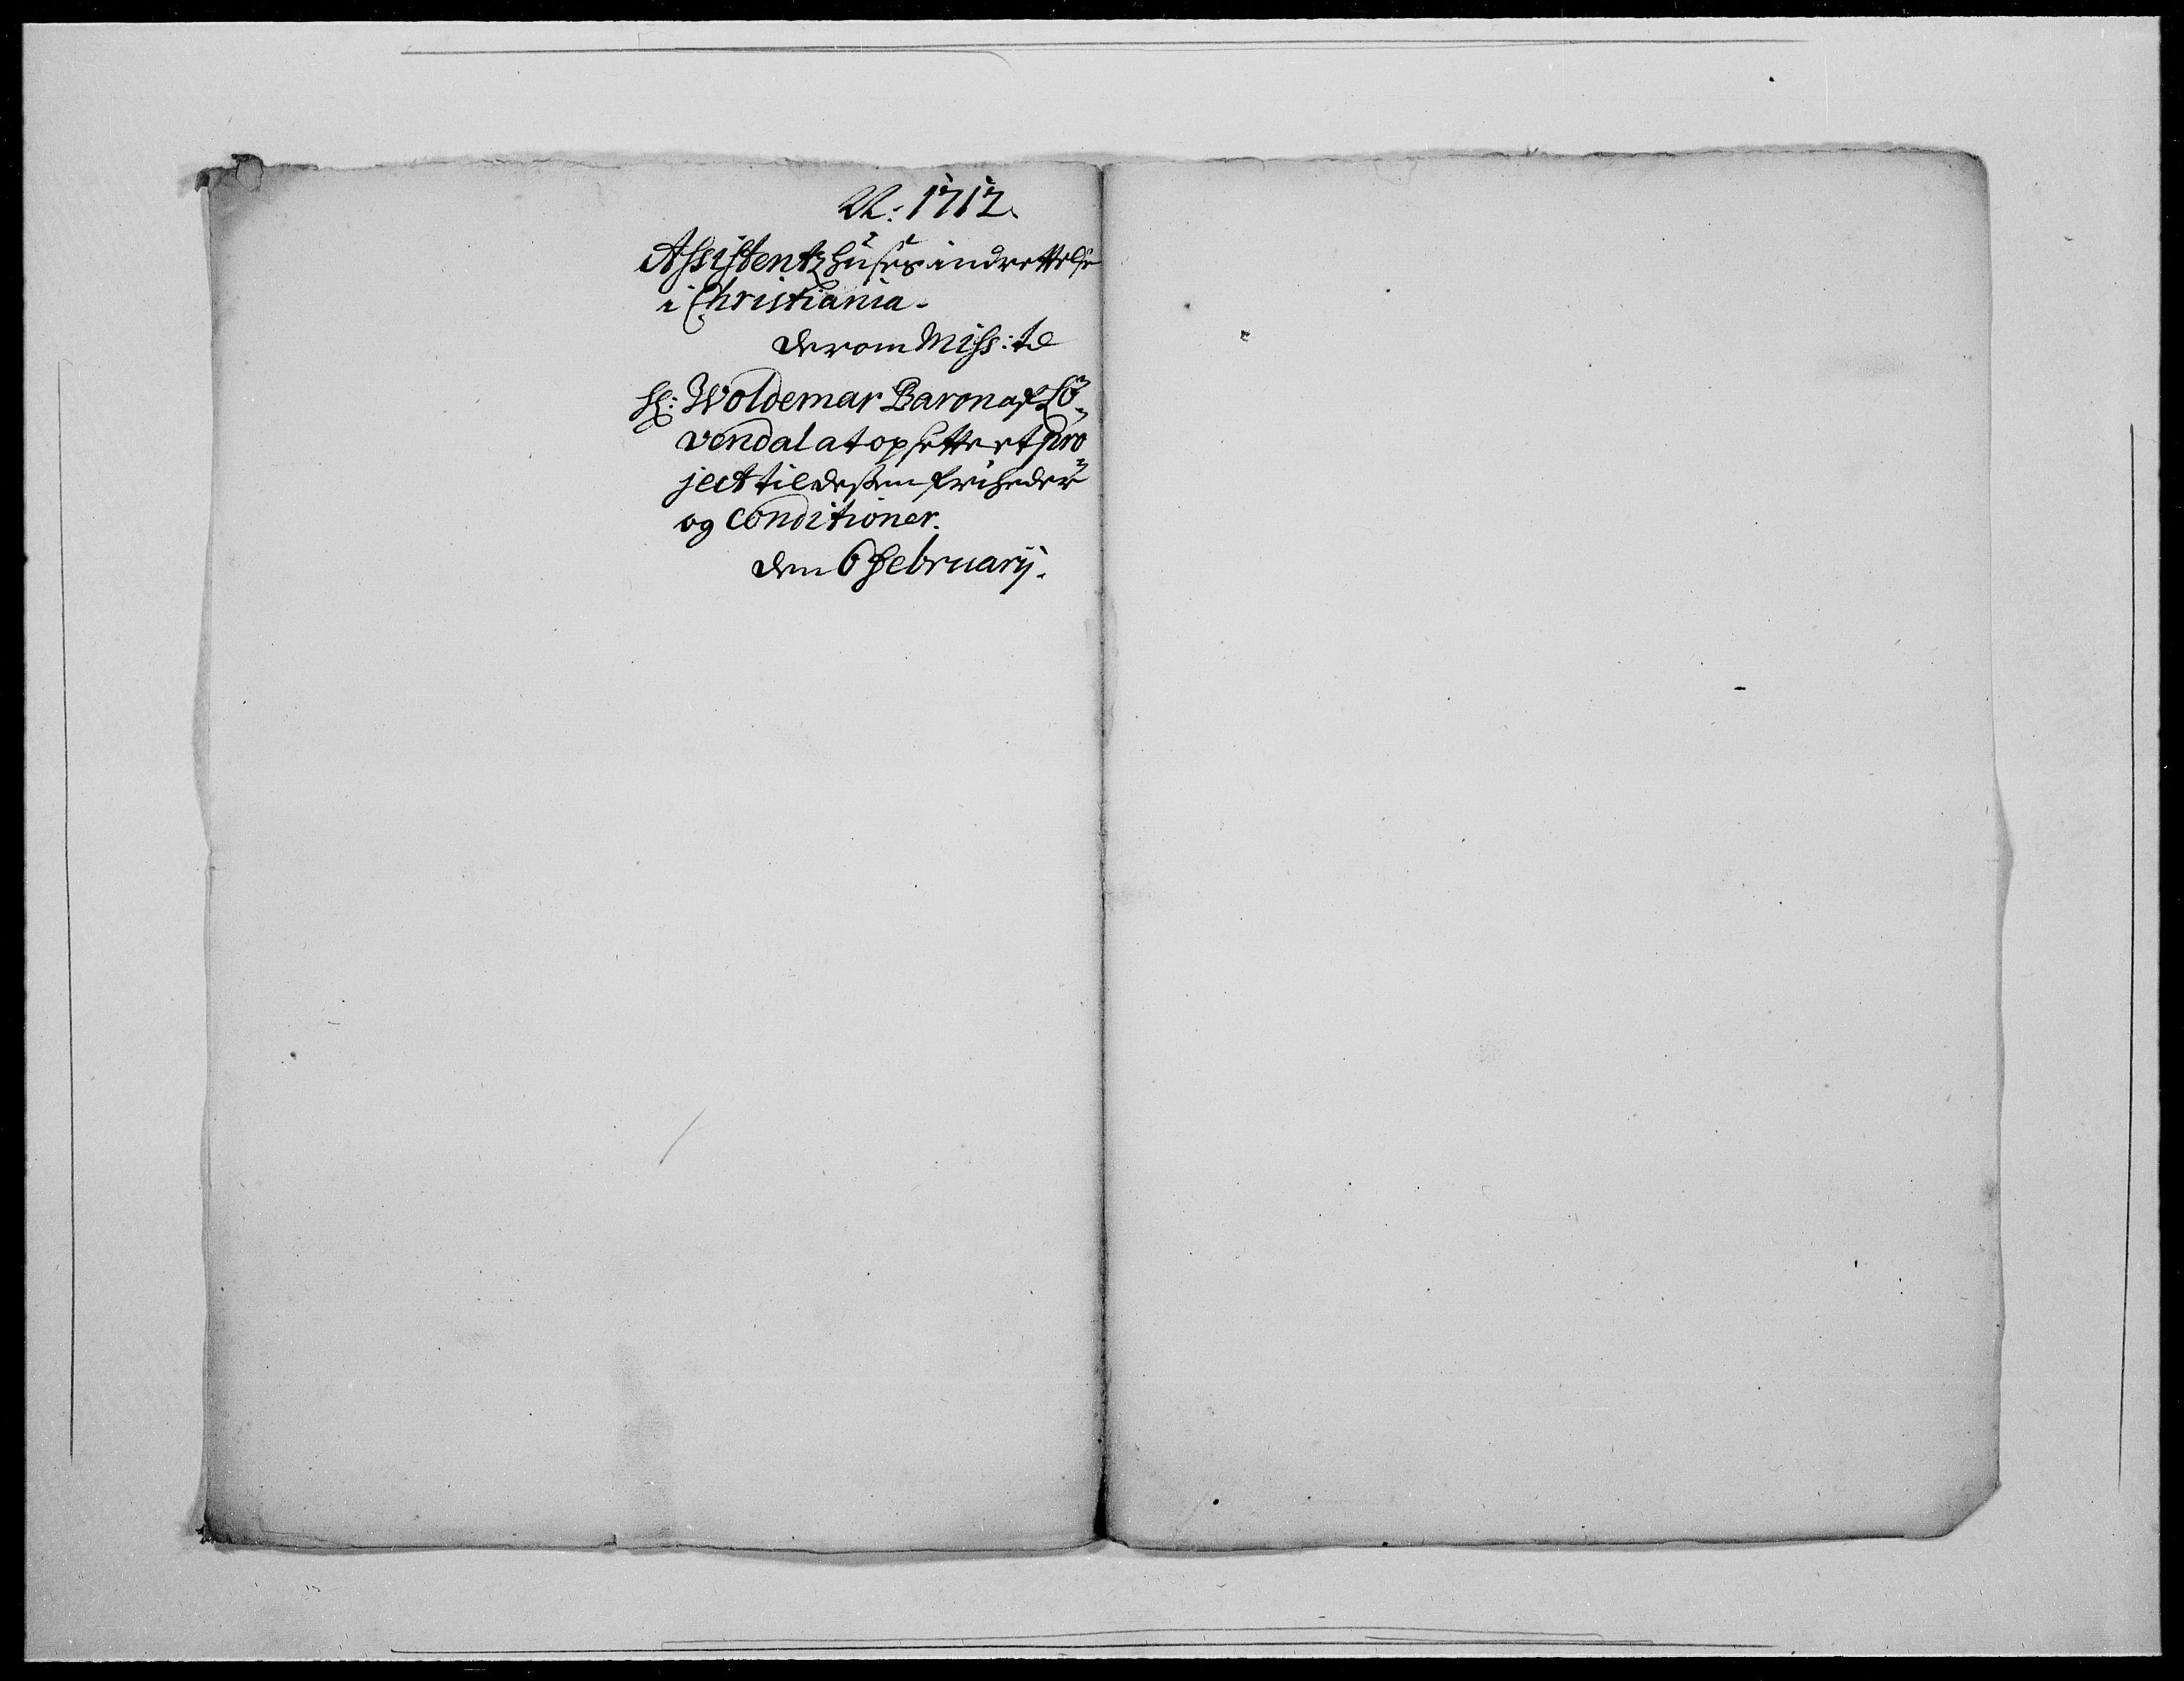 N: 1712.
Assistentz Huses indrettelse
i Christiania.
derom Miss: til
H: Woldemar Baron af Lö-
vendal at opsette et Pro
ject til dessen friheder
og Conditioner.
den 6 Februarij.